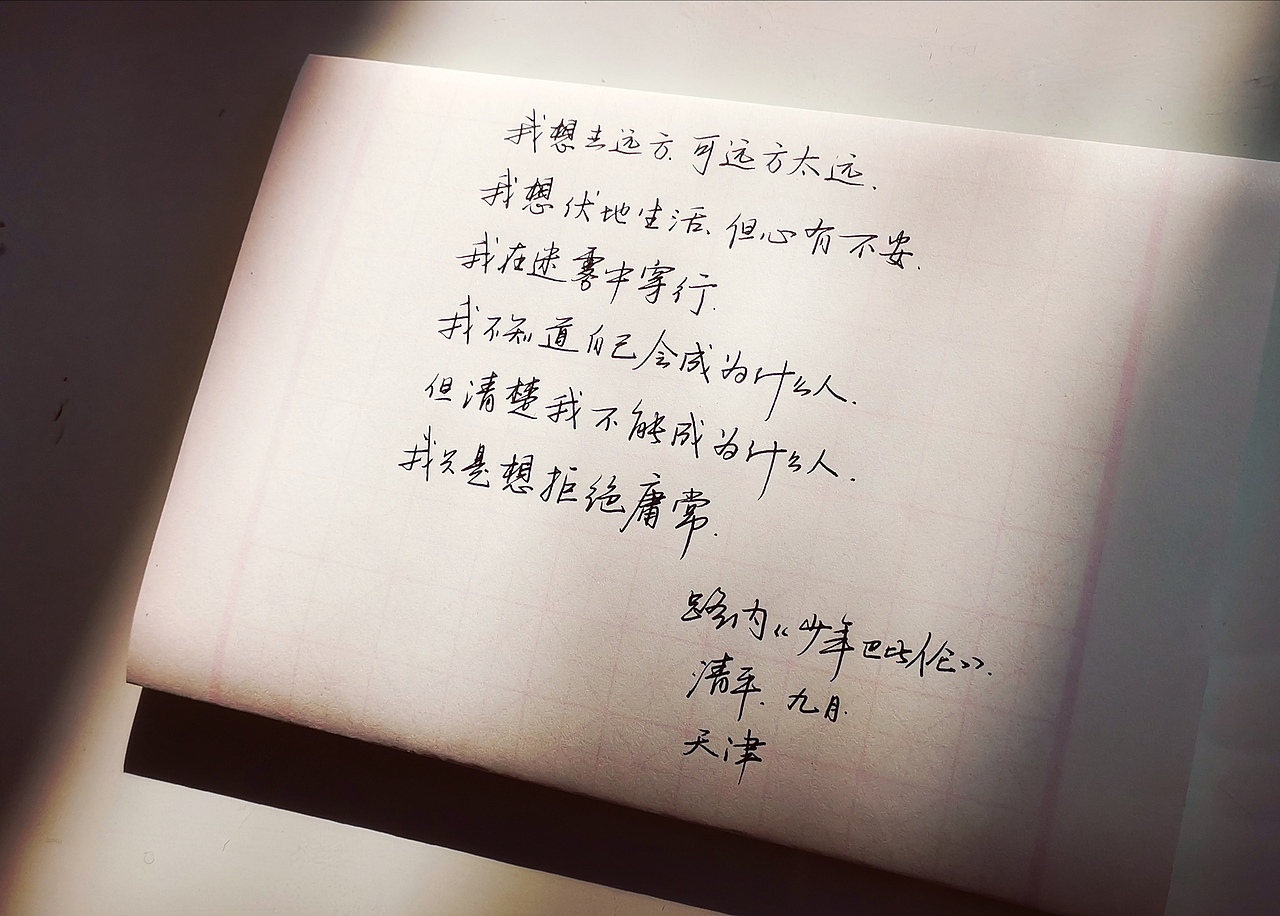 我想去远方.可远方太远.
我想伏地生活.但心有不安.
我在迷雾中穿行.
我不知道自己会成为什么人.
但清楚我不能成为什么人.
我只是想拒绝庸常.
路内《少年巴比伦》.
清平.九月.
天津